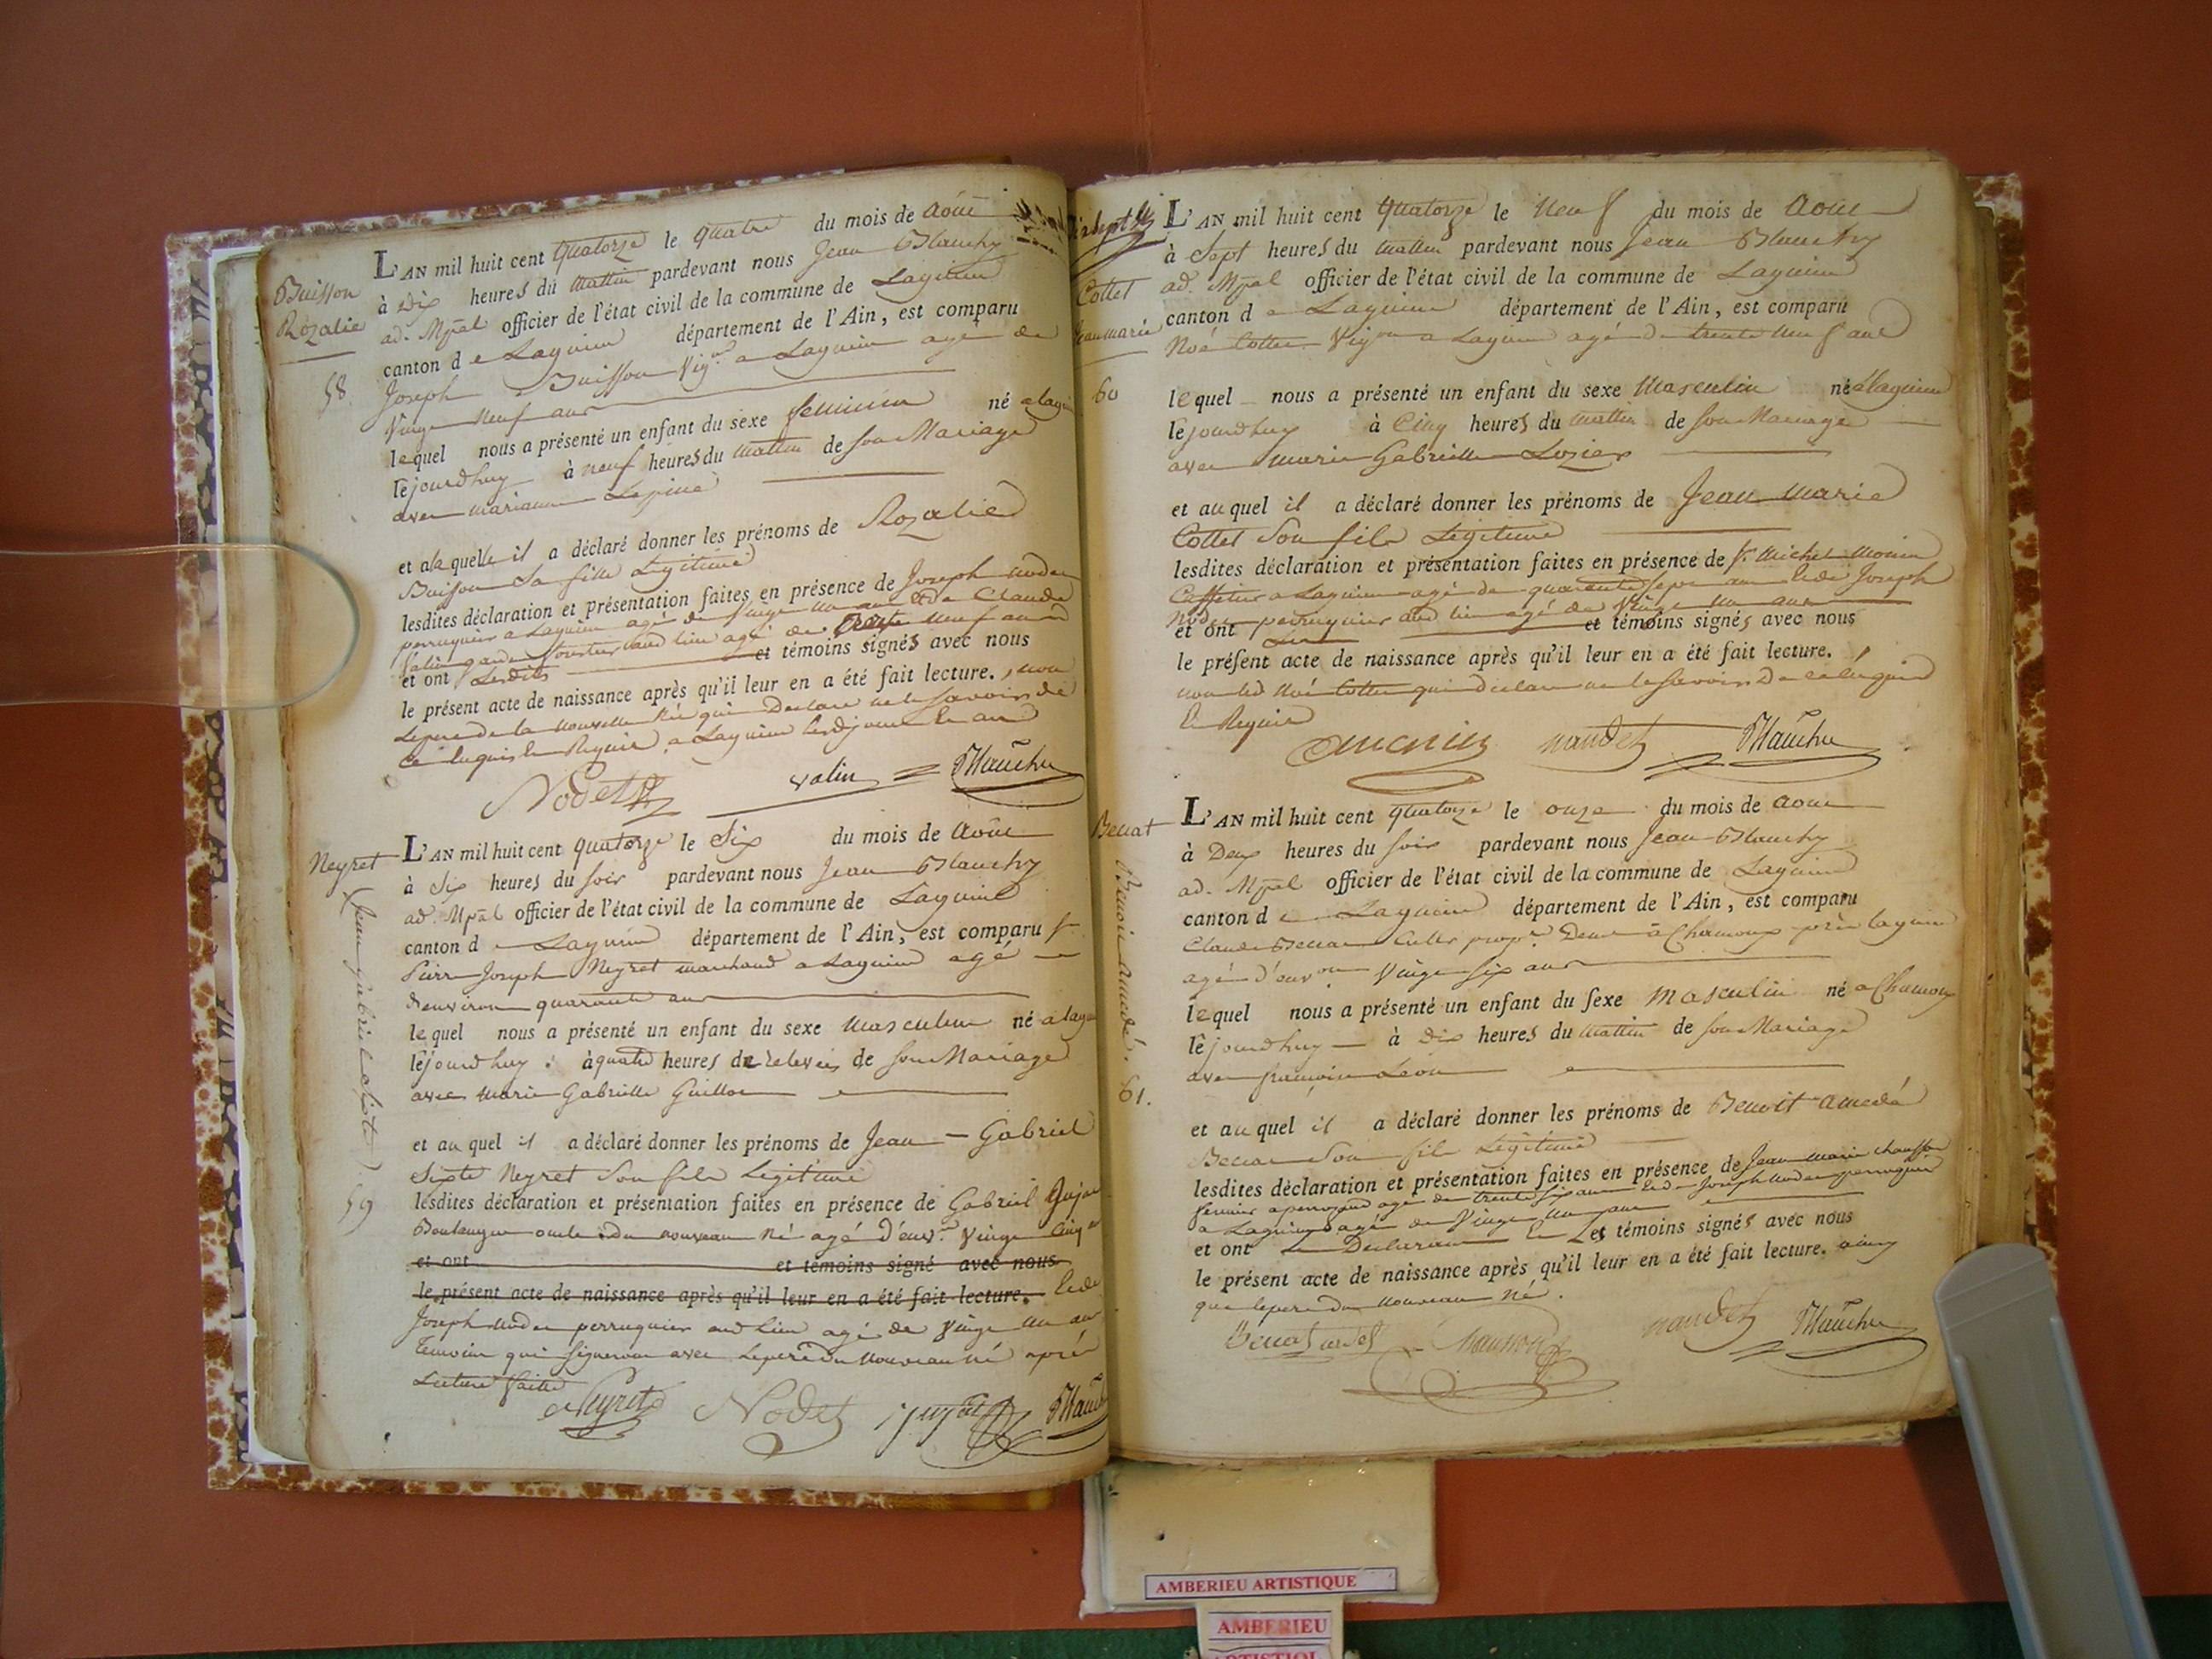 Buisson
Rozalie
58.
L'AN mil huit cent quatorze le quatre du mois de Août
à dix heures du mattin pardevant nous Jean Blanchy
ad. Mpal officier de l'état civil de la commune de Lagnieu
canton de Lagnieu département de l'Ain, est comparu
Joseph Buisson Vigon a Lagnieu agé de
Vingt neuf ans
lequel nous a présenté un enfant du sexe feminin né a lagnieu
lejourdhuy à neuf heures du mattin de son Mariage
avec marianne Lepine
et alaquelle il a déclaré donner les prénoms de Rozalie
Buisson Sa fille Legitime
lesdites déclaration et présentation faites en présence de Joseph nodet
perruquier a Lagnieu agé de vingt un ans et de Claude
Valin garde forestier aud lieu agé de trente neuf ans
et ont Lesdits et témoins signés avec nous
le présent acte de naissance après qu'il leur en a été fait lecture, non
Le pere de la nouvelle née qui Declare ne le savoir de
ce enquis en Requis, a Lagnieu lesd jour et an
Nodet Valin Blanchy
Neyret
Jean gabriel sixte
59
L'AN mil huit cent quatorze le Six du mois de Août
à Six heures du soir pardevant nous Jean Blanchy
ad. Mpal officier de l'état civil de la commune de Lagnieu
canton de Lagnieu département de l'Ain, est comparu Sr
Pierre Joseph Neyret marchand a Lagnieu agé
denviron quarante ans
lequel nous a présenté un enfant du sexe Masculin né a lagnieu
lejourdhuy à quatre heures de relevée de son Mariage
avec Marie Gabrielle Guillot
et auquel il a déclaré donner les prénoms de Jean - Gabriel
Sixte Neyret Son fils Legitime
lesdites déclaration et présentation faites en présence de Gabriel
Boulanger oncle du nouveau né agé d'envon vingt cinq ans
et ont et témoins signé avec nous
le présent acte de naissance après qu'il leur en a été fait lecture. et de
Joseph nodet perruquier aud Lieu agé de vingt un ans
temoins qui signeront avec Le pere du Nouveau né après
Lecture faite
Neyret Nodet Blanchy
Cottet
Jean marie
60
L'AN mil huit cent quatorze le neuf du mois de Août
à Sept heures du mattin pardevant nous Jean Blanchy
ad. Mpal officier de l'état civil de la commune de Lagnieu
canton de Lagnieu département de l'Ain, est comparu
Noé Cottet Vigon a Lagnieu agé de trente neuf ans
lequel nous a présenté un enfant du sexe Masculin né a lagnieu
lejourdhuy à Cinq heures du mattin de son Mariage
avec marie Gabrielle Lozier
et auquel il a déclaré donner les prénoms de Jean Marie
Cottet Son fils Legitime
lesdites déclaration et présentation faites en présence de Sr Michel Monin
Caffetier a Lagnieu agé de quarante sept ans et de Joseph
Nodet perruquier aud lieu agé de Vingt un ans
et ont Les et témoins signés avec nous
le présent acte de naissance après qu'il leur en a été fait lecture,
non led Noé Cottet qui declare ne le savoir De ce enquis
et Requis
nandet Blanchy
Benat
Benoit amedé.
61.
L'AN mil huit cent quatorze le onze du mois de Août
à Deux heures du soir pardevant nous Jean Blanchy
ad. Mpal officier de l'état civil de la commune de Lagnieu
canton de Lagnieu département de l'Ain, est comparu
Claude Benat Cultr propre Demt à Chamoux près lagnieu
agé d'environ vingt six ans
lequel nous a présenté un enfant du sexe Masculin né a Chamoux
lejourdhuy à dix heures du mattin de son Mariage
avec françoise Leon
et auquel il a déclaré donner les prénoms de Benoit amedé
Benat Son fils Legitime
lesdites déclaration et présentation faites en présence de Jean Marie chausson
agé de trente six ans et de Joseph nodet perruquier
a Lagnieu agé de Vingt un ans
et ont Le Declarant et Les témoins signés avec nous
le présent acte de naissance après qu'il leur en a été fait lecture. ainsy
que le pere du Nouveau né.
Benat chausson nandet Blanchy
AMBERIEU ARTISTIQUE
AMBERIEU
ARTISTIQUE